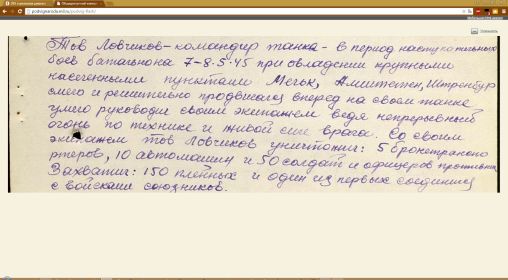 podvignaroda.mil.ru/podvig-flash/
Тов Ловчиков - командир танка - в период наступательных
боев батальона 7-8.5.45 при овладении крупными
населенными пунктами Мельк, Амштеттен, Штренбур
смело и решительно продвигался вперед на своем танке
умело руководил своим экипажем ведя непрерывный
огонь по технике и живой силе врага. Со своим
экипажем тов Ловчиков уничтожил: 5 бронетранспо
ртеров, 10 автомашин и 50 солдат и офицеров противника
Захватил: 150 пленных и один из первых соединился
с войсками союзников.